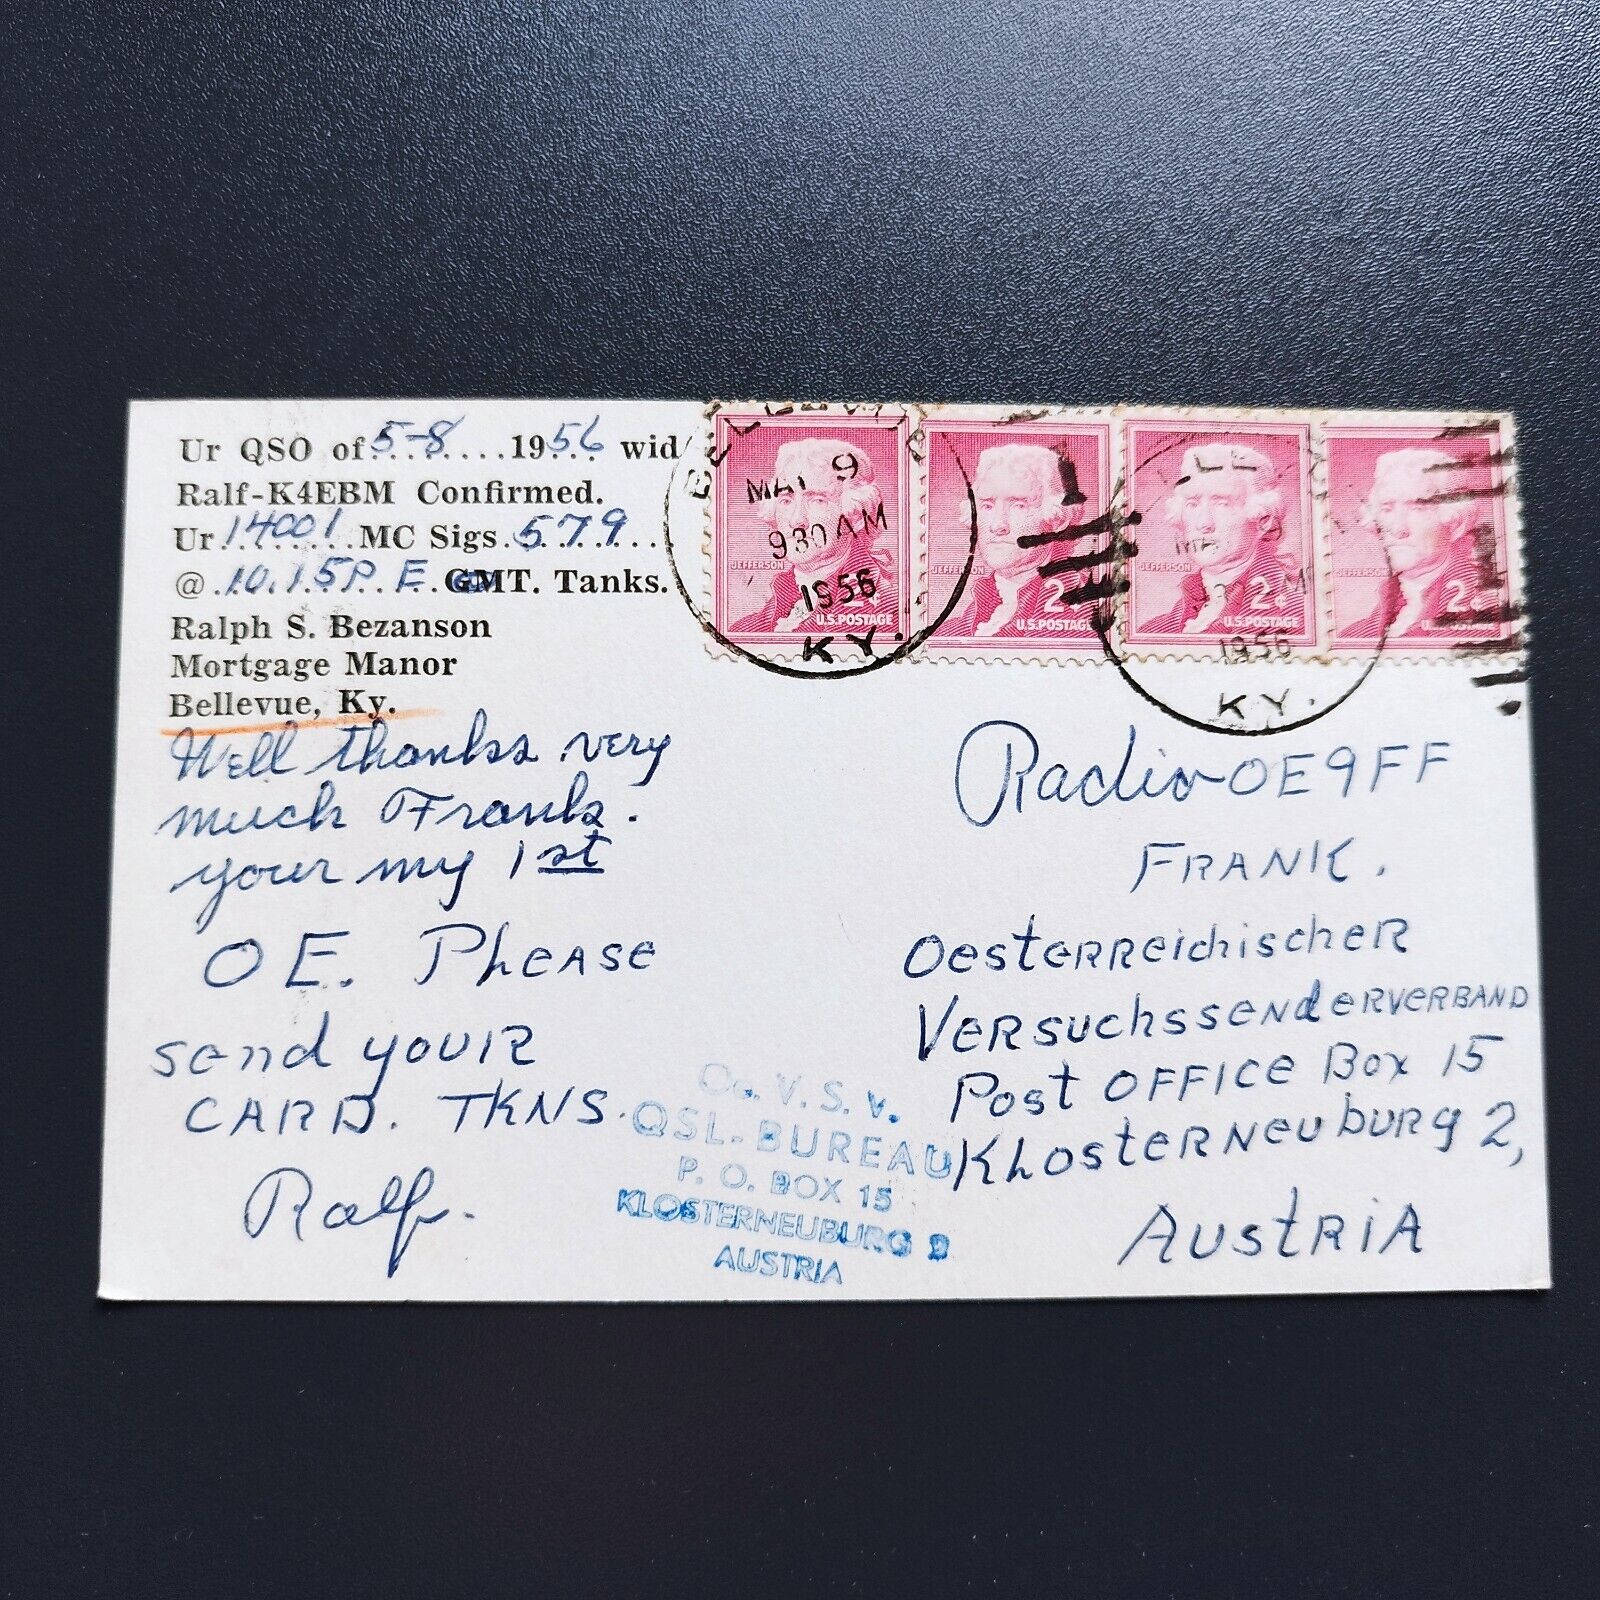 Ur QSO of 5-8 1956 wid
Ralf-K4EBM Confirmed.
Ur 14001 MC Sigs 579
@ 10.15 P. E. GMT. Tanks.
Ralph S. Bezanson
Mortgage Manor
Bellevue, Ky.
Well thanks very
much Frank.
your my 1st
OE. Please
send your
CARD. TKNS.
Ralf.
BELLEVUE
MAY 9
930 AM
1956
KY.
JEFFERSON
2¢
U.S. POSTAGE
JEFFERSON
2¢
U.S. POSTAGE
JEFFERSON
2¢
U.S. POSTAGE
JEFFERSON
2¢
U.S. POSTAGE
MAY 9
1956
KY.
Radio OE9FF
FRANK.
OesterreichischeR
VersuchssendERVERBAND
Post OFFICE Box 15
KLosterneuburg 2,
AustRiA
Oe. V. S. V.
QSL-BUREAU
P. O. BOX 15
KLOSTERNEUBURG 2
AUSTRIA